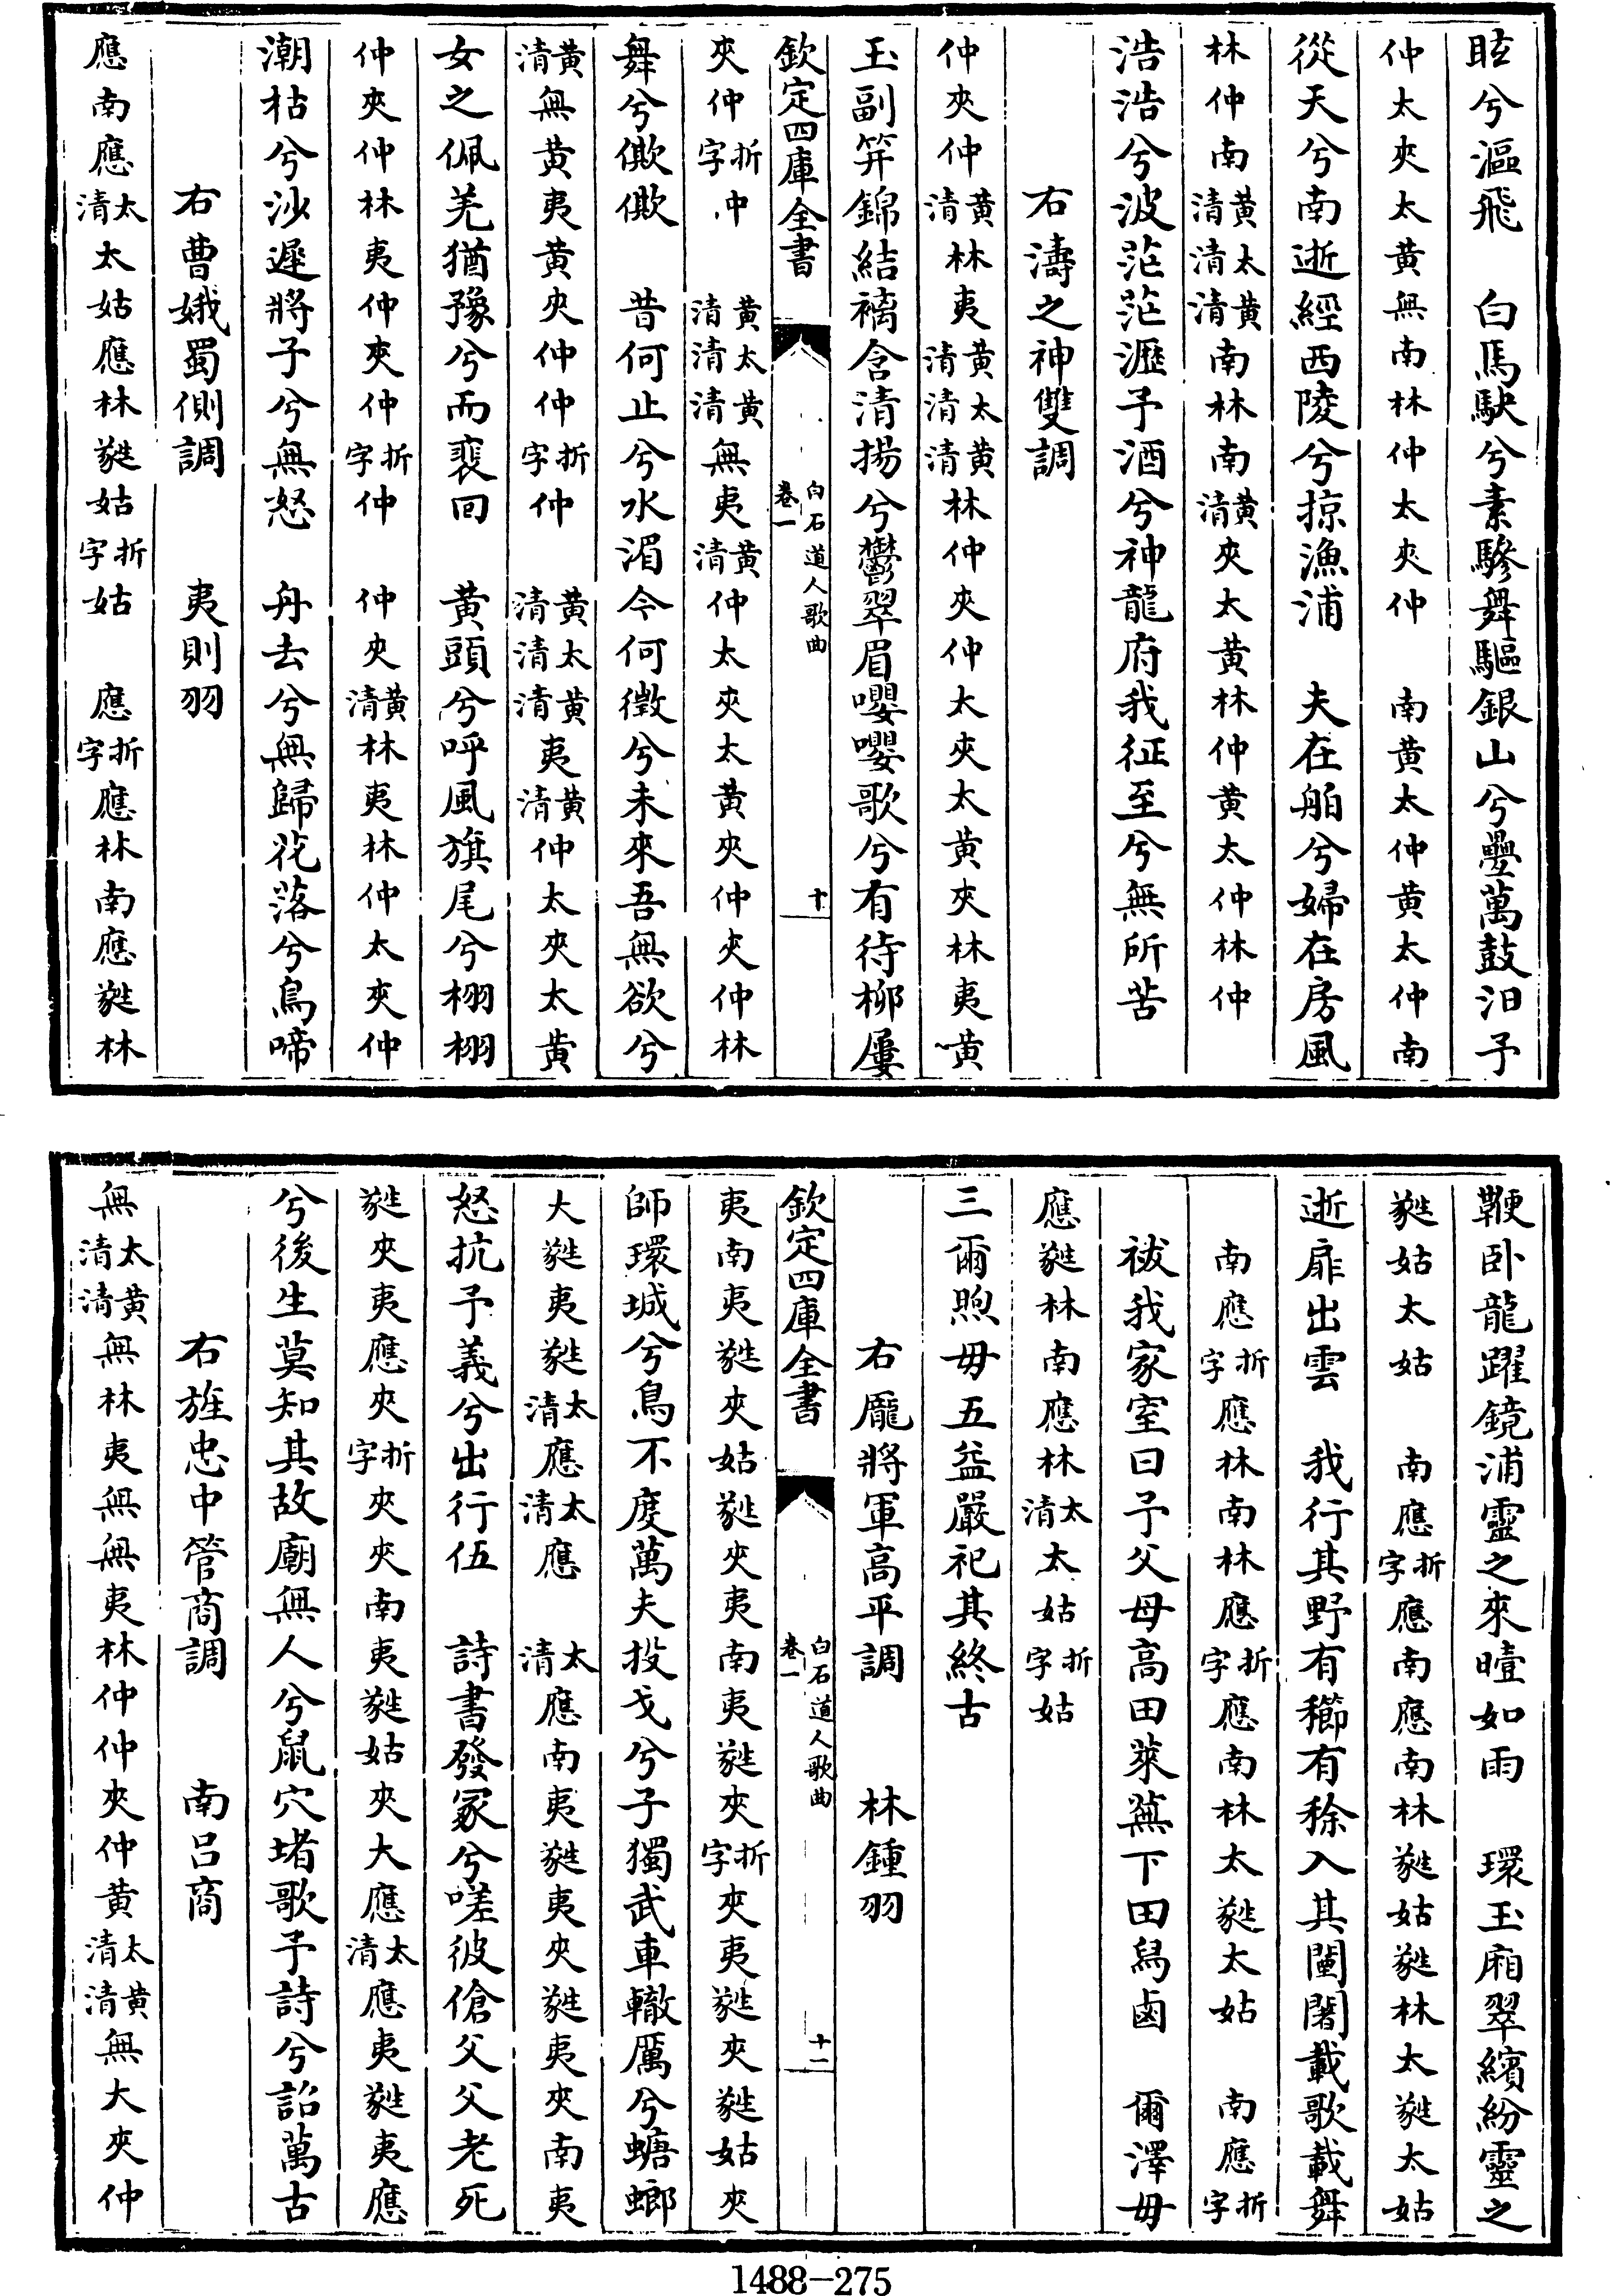 眩兮漚飛　白馬駃兮素驂舞驅銀山兮疊萬鼓汨予
仲太夾太黄無南林仲太夾仲　南黄太仲黄太仲南
從天兮南逝經西陵兮掠漁浦　夫在舶兮婦在房風
林仲南黄清太清黄清南林南黄清夾太黄林仲黄太仲林仲
浩浩兮波茫茫瀝予酒兮神龍府我征至兮無所苦
右濤之神雙調
仲夾仲黄清林夷黄清太清黄清林仲夾仲太夾太黄夾林夷黄
玉副笄錦結褵含清揚兮鬱翠眉嚶嚶歌兮有待柳屢
欽定四庫全書　白石道人歌曲　卷一　十
夾仲折字仲　黄清太清黄清無夷黄清仲太夾太黄夾仲夾仲林
舞兮僛僛　昔何止兮水湄今何徵兮未來吾無欲兮
黄清無黄夷黄夾仲仲折字仲　黄清太清黄清夷黄清仲太夾太黄
女之佩羌猶豫兮而裴回　黄頭兮呼風旗尾兮栩栩
仲夾仲林夷仲夾仲折字仲　仲夾黄清林夷林仲太夾仲
潮枯兮沙遲將子兮無怒　舟去兮無歸花落兮鳥啼
右曹娥蜀側調　夷則羽
應南應太清太姑應林蕤姑折字姑　應折字應林南應蕤林
鞭卧龍躍鏡浦靈之來曀如雨　環玉廂翠繽紛靈之
蕤姑太姑　南應折字應南應南林蕤姑蕤林太蕤太姑
逝扉出雲　我行其野有櫛有稌入其闉闍載歌載舞
南應折字應林南林應折字應南林太蕤太姑　南應折字
祓我家室曰予父母高田萊蕪下田舄鹵　爾澤毋
應蕤林南應林太清太姑折字姑
三爾煦毋五益嚴祀其終古
右龎將軍高平調　林鍾羽
欽定四庫全書　白石道人歌曲　卷一　十一
夷南夷蕤夾姑蕤夾夷南夷蕤夾折字夾夷蕤夾蕤姑夾
師環城兮鳥不度萬夫投戈兮子獨武車轍厲兮螗螂
大蕤夷蕤太清應太清應　太清應南夷蕤夷夾蕤夷夾南夷
怒抗予義兮出行伍　詩書發冢兮嗟彼傖父父老死
蕤夾夷應夾折字夾夾南夷蕤姑夾大應太清應夷蕤夷應
兮後生莫知其故廟無人兮鼠穴堵歌予詩兮詔萬古
右旌忠中管商調　南吕商
無太清黄清無林夷無無夷林仲仲夾仲黄太清黄清無大夾仲
1488—275